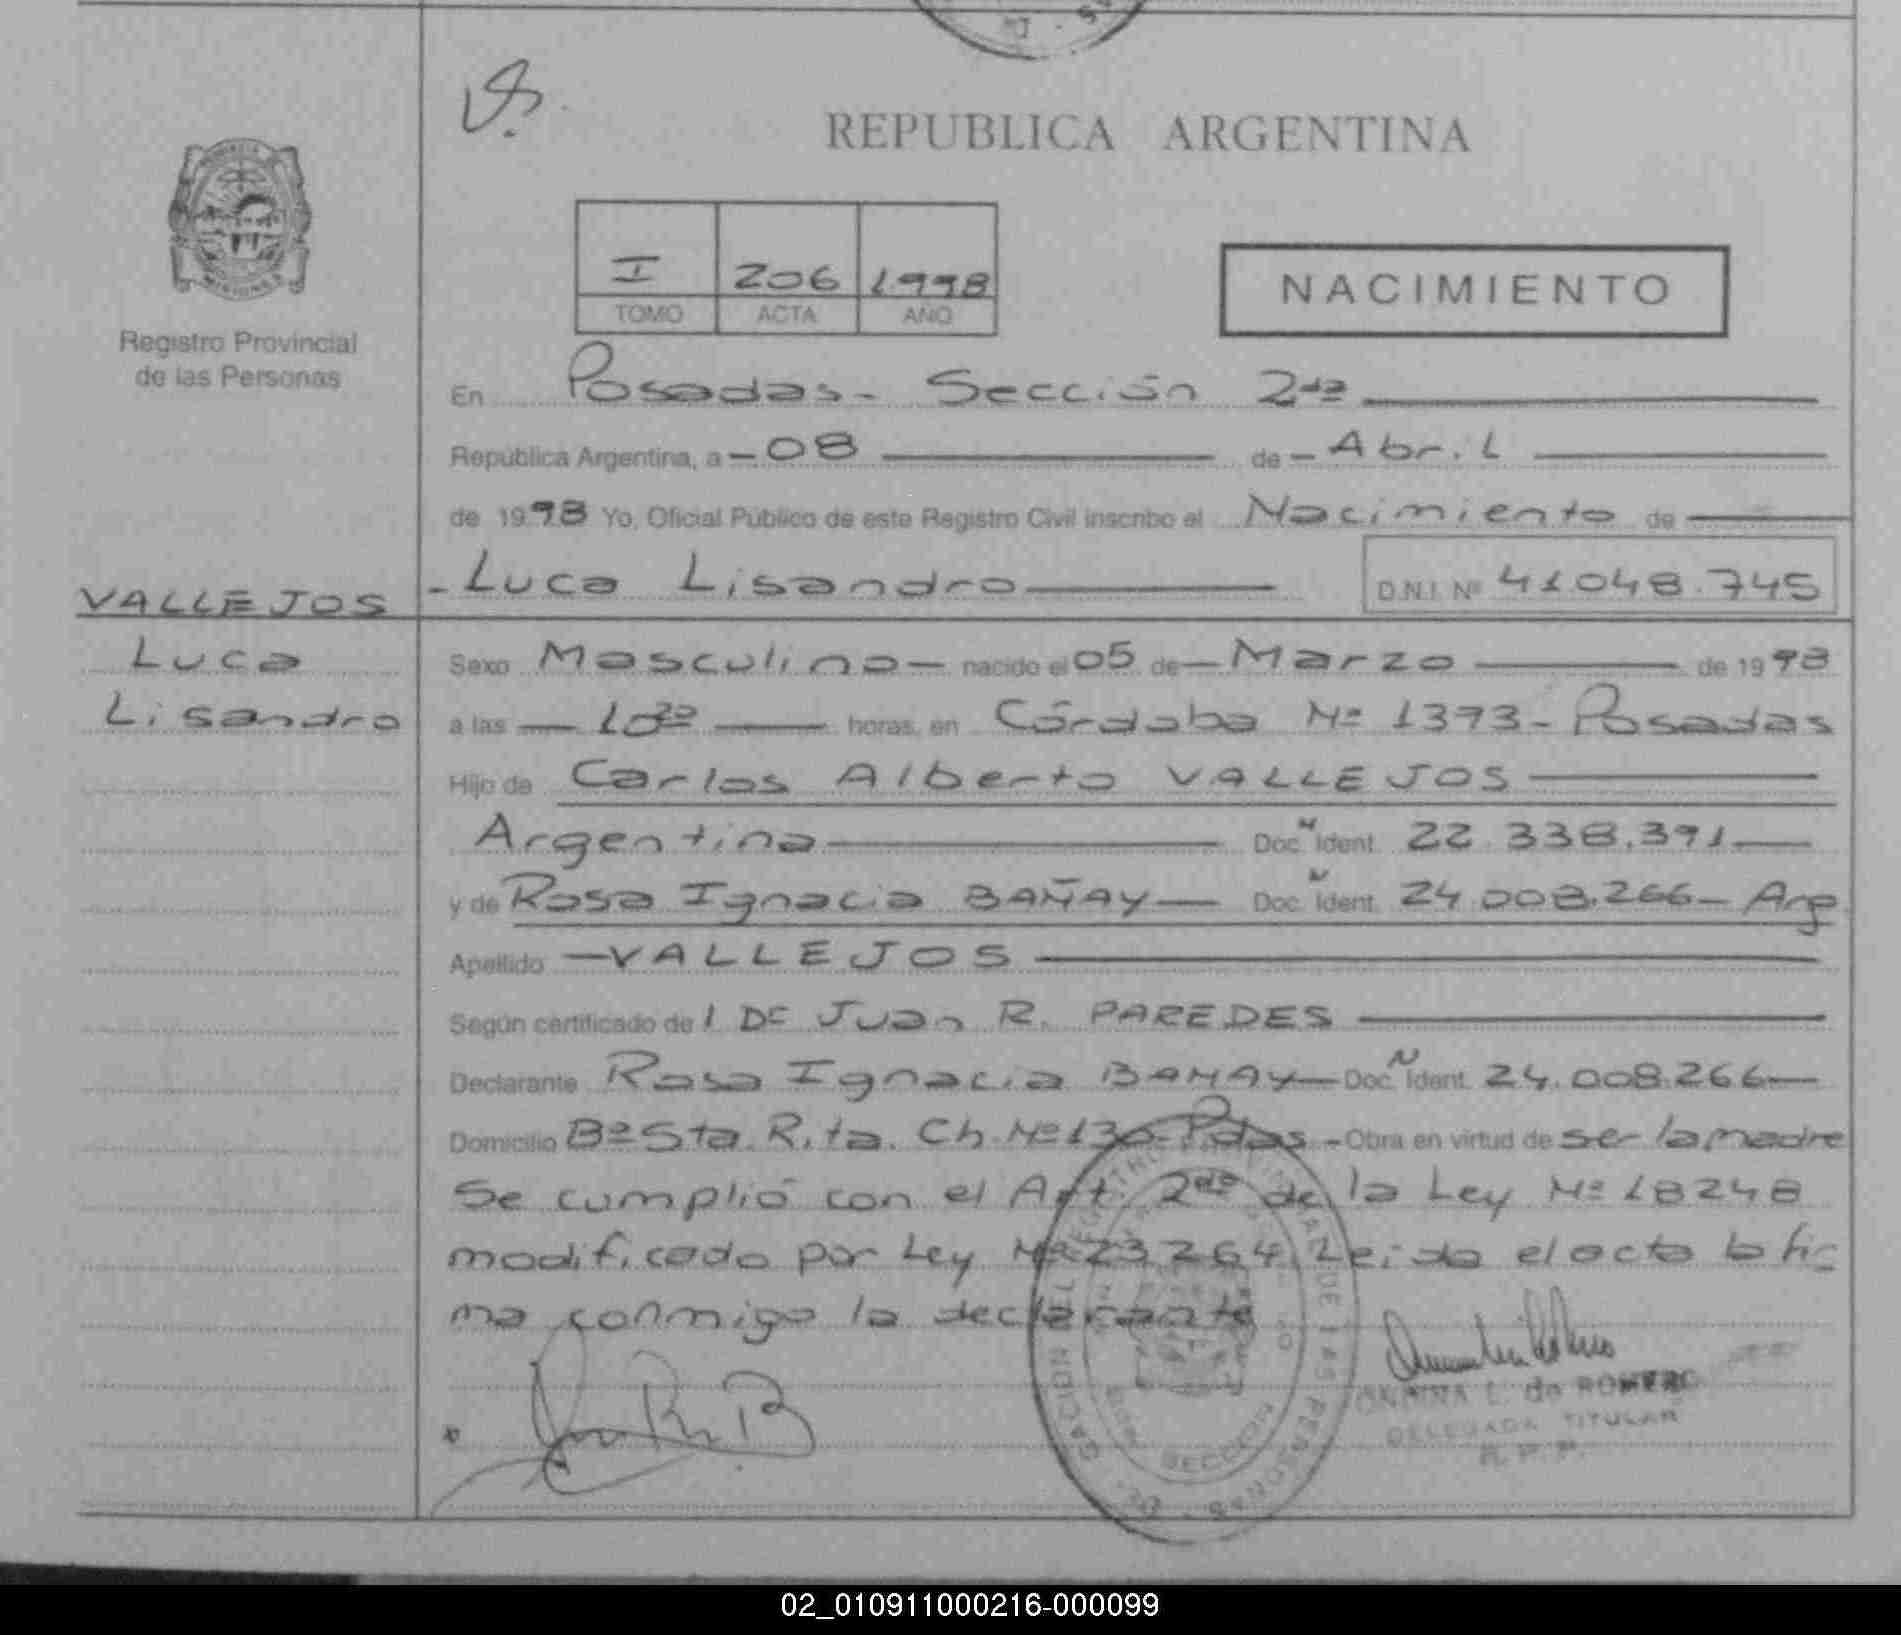 REPUBLICA ARGENTINA
I 206 1998
TOMO ACTA AÑO
NACIMIENTO
Registro Provincial
de las Personas
En Posadas - Sección 2da
República Argentina, a - 08 de - Abril
de 1998 Yo, Oficial Público de este Registro Civil inscribo el Nacimiento de
- Luca Lisandro D.N.I. Nº 41.048.745
VALLEJOS
Luca
Lisandro
Sexo Masculino - nacido el 05 de - Marzo de 1998
a las 10 30 horas, en Córdoba Nº 1393 - Posadas
Hijo de Carlos Alberto VALLEJOS
Argentina Doc. N Ident. 22.338.391
y de Rosa Ignacia BAÑAY Doc. N Ident. 24.008.266 - Arg
Apellido - VALLEJOS
Según certificado de / Dr Juan R. PAREDES
Declarante Rosa Ignacia BAÑAY Doc. N Ident. 24.008.266
Domicilio Bº Sta. Rita. Ch. Nº 130 - Pdas - Obra en virtud de ser la madre
Se cumplió con el Art. 2do de la Ley Nº 18248
modificado por Ley Nº 23264 Leida el acta la fir
ma conmigo la declarante
REGISTRO PROVINCIAL DE LAS PERSONAS
SECCION
L. de ROMERO
DELEGADA TITULAR
R. P. P.
02_010911000216-000099